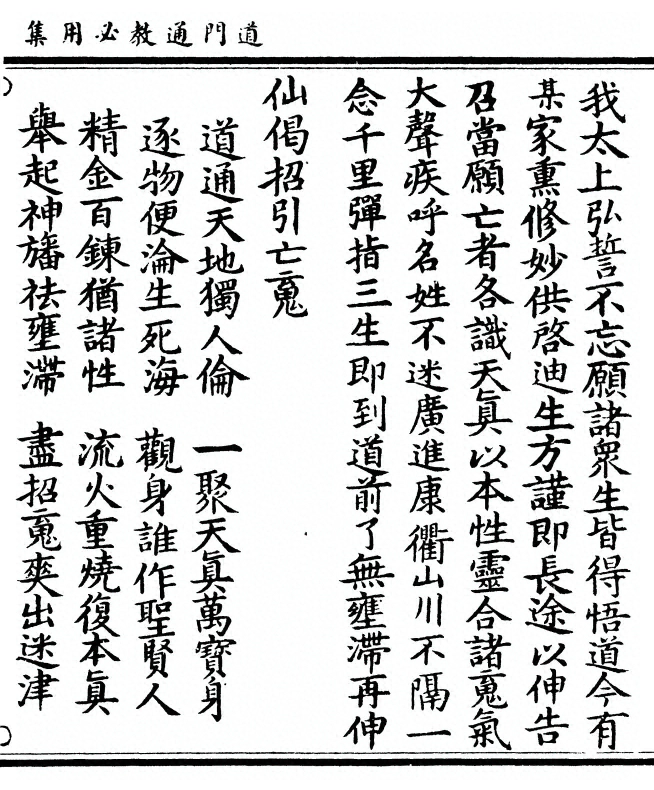 道門通教必用集
我太上弘誓不忘願諸衆生皆得悟道今有
某家熏修妙供啓迪生方謹即長途以伸告
召當願亡者各識天眞以本性靈合諸䰟氣
大聲疾呼名姓不迷廣進康衢山川不隔一
念千里彈指三生即到道前了無壅滯再伸
仙偈招引亡䰟
道通天地獨人倫　一聚天眞萬寶身
逐物便淪生死海　觀身誰作聖賢人
精金百鍊猶諸性　流火重燒復本眞
舉起神旛祛壅滯　盡招䰟爽出迷津